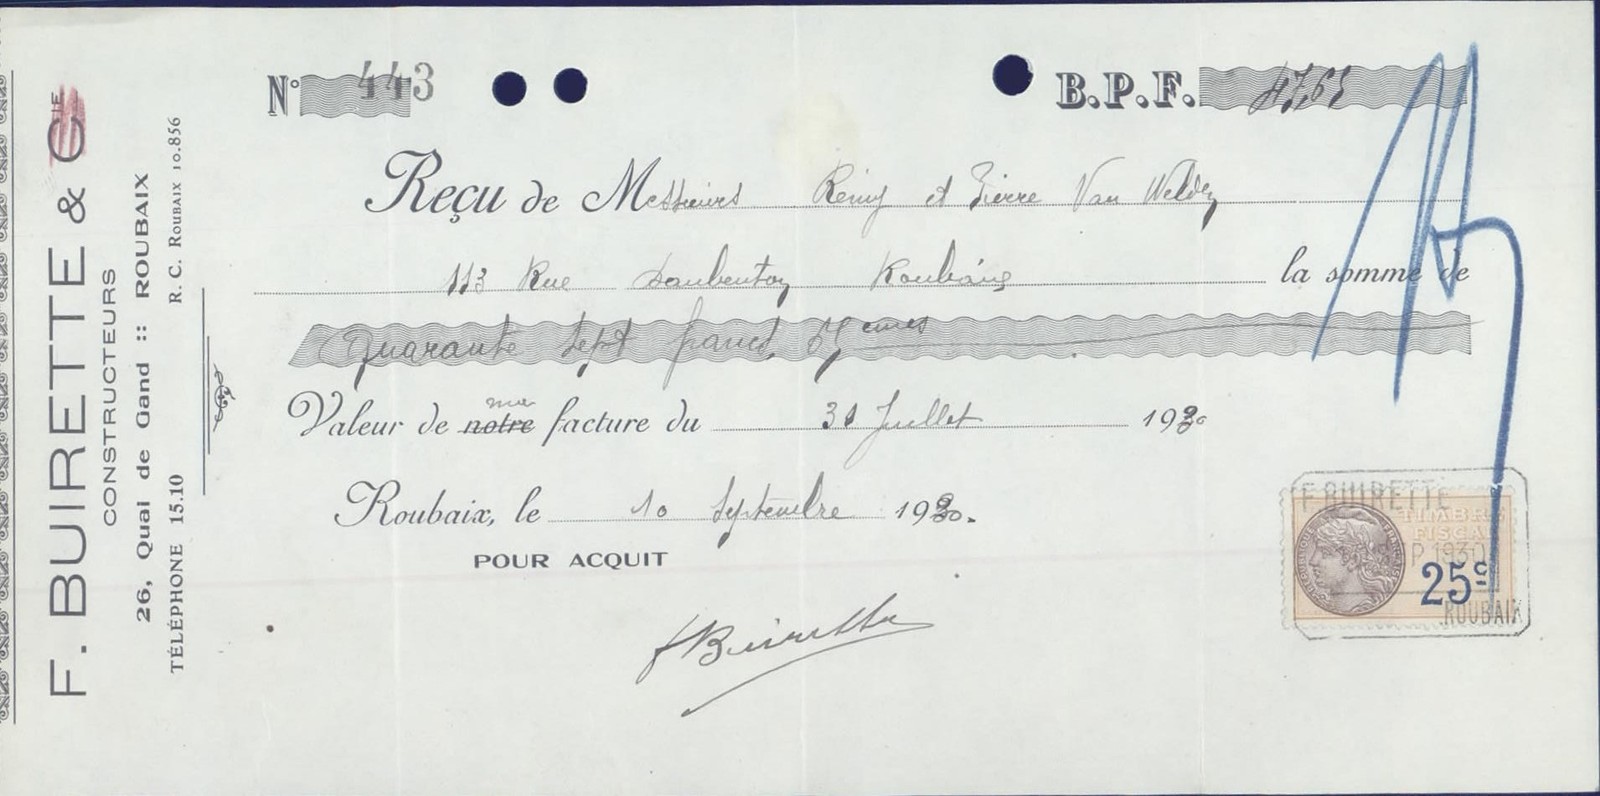 F. BUIRETTE & Cie
CONSTRUCTEURS
26, Quai de Gand :: ROUBAIX
TÉLÉPHONE 15.10 R. C. ROUBAIX 10.856
N° 443 B.P.F. 47,65
Reçu de Messieurs Remy et Pierre Van Welden
113 Rue Daubenton Roubaix la somme de
Quarante Sept francs 65 cmes
Valeur de notre ma facture du 31 Juillet 1930
Roubaix, le 10 Septembre 1930.
POUR ACQUIT
F Buirette
F. BUIRETTE
TIMBRE
FISCAL
1930
25c
ROUBAIX